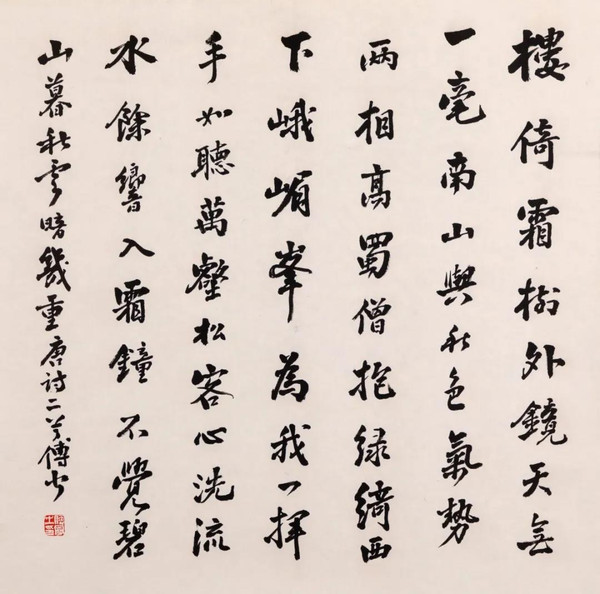 樓倚霜樹外鏡天無
一毫南山與秋色氣勢
两相高蜀僧抱綠綺西
下峨嵋峯為我一揮
手如聽萬壑松客心洗流
水餘響入霜鐘不覺碧
山暮秋雲暗幾重唐詩二首傅